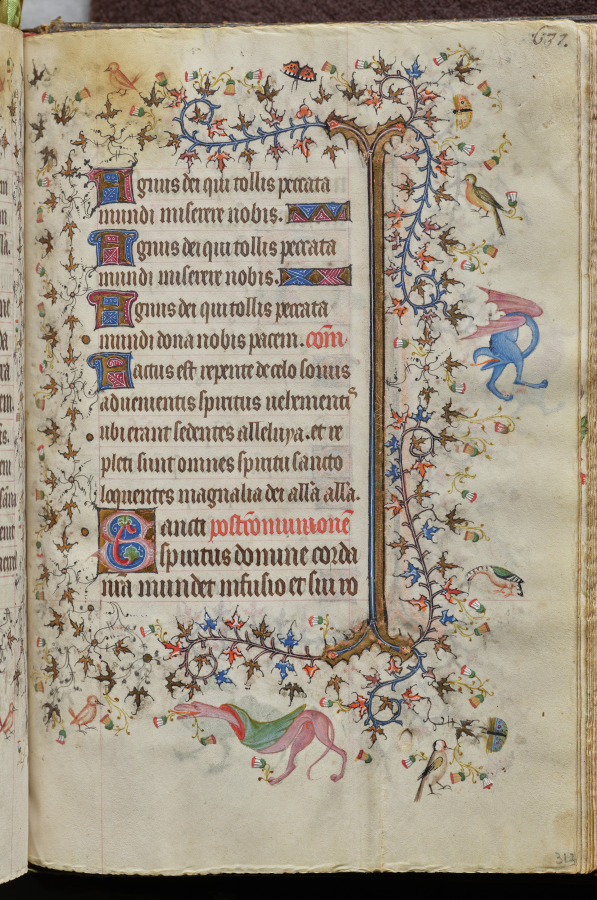 637.
Agnus dei qui tollis peccata
mundi miserere nobis.
Agnus dei qui tollis peccata
mundi miserere nobis.
Agnus dei qui tollis peccata
mundi dona nobis pacem. com̄
Factus est repente de celo sonus
aduenientis spiritus uehementis
ubi erant sedentes alleluya. et re
pleti sunt omnes spiritu sancto
loquentes magnalia dei all'a all'a.
Sancti postcōmunionē
spiritus domine corda
n̄ra mundet infusio et sui ro